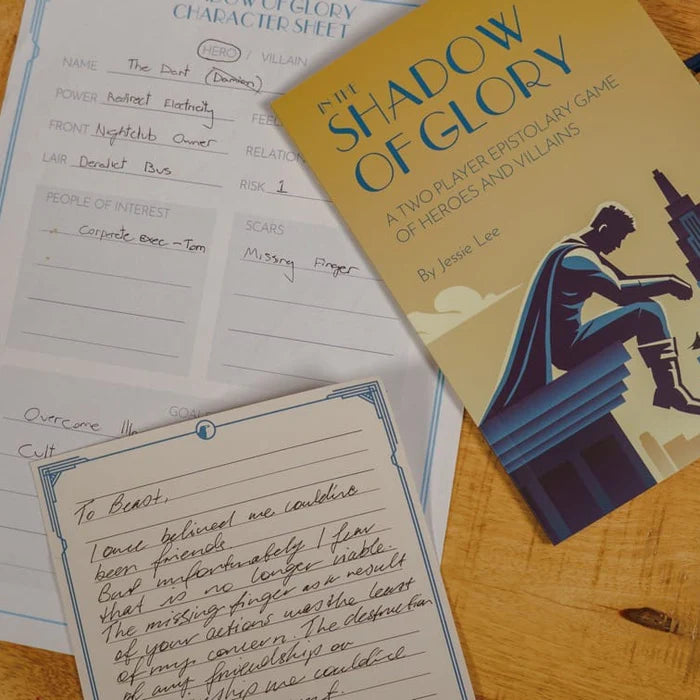 SHADOW OF GLORY
CHARACTER SHEET
HERO / VILLAIN
NAME The Dart (Damien)
POWER Redirect Electricity
FRONT Nightclub Owner
LAIR Derelict Bus
FEEL
RELATION
RISK 1
PEOPLE OF INTEREST
Corporate Exec - Tom
SCARS
Missing Finger
GOAL
Overcome
Cult
IN THE
SHADOW
OF GLORY
A TWO PLAYER EPISTOLARY GAME
OF HEROES AND VILLAINS
By Jessie Lee
To Beast,
I once believed we could've
been friends.
But unfortunately I fear
that is no longer viable.
The missing finger as a result
of your actions was the least
of my concern. The destruction
of any friendship or
ship we could've